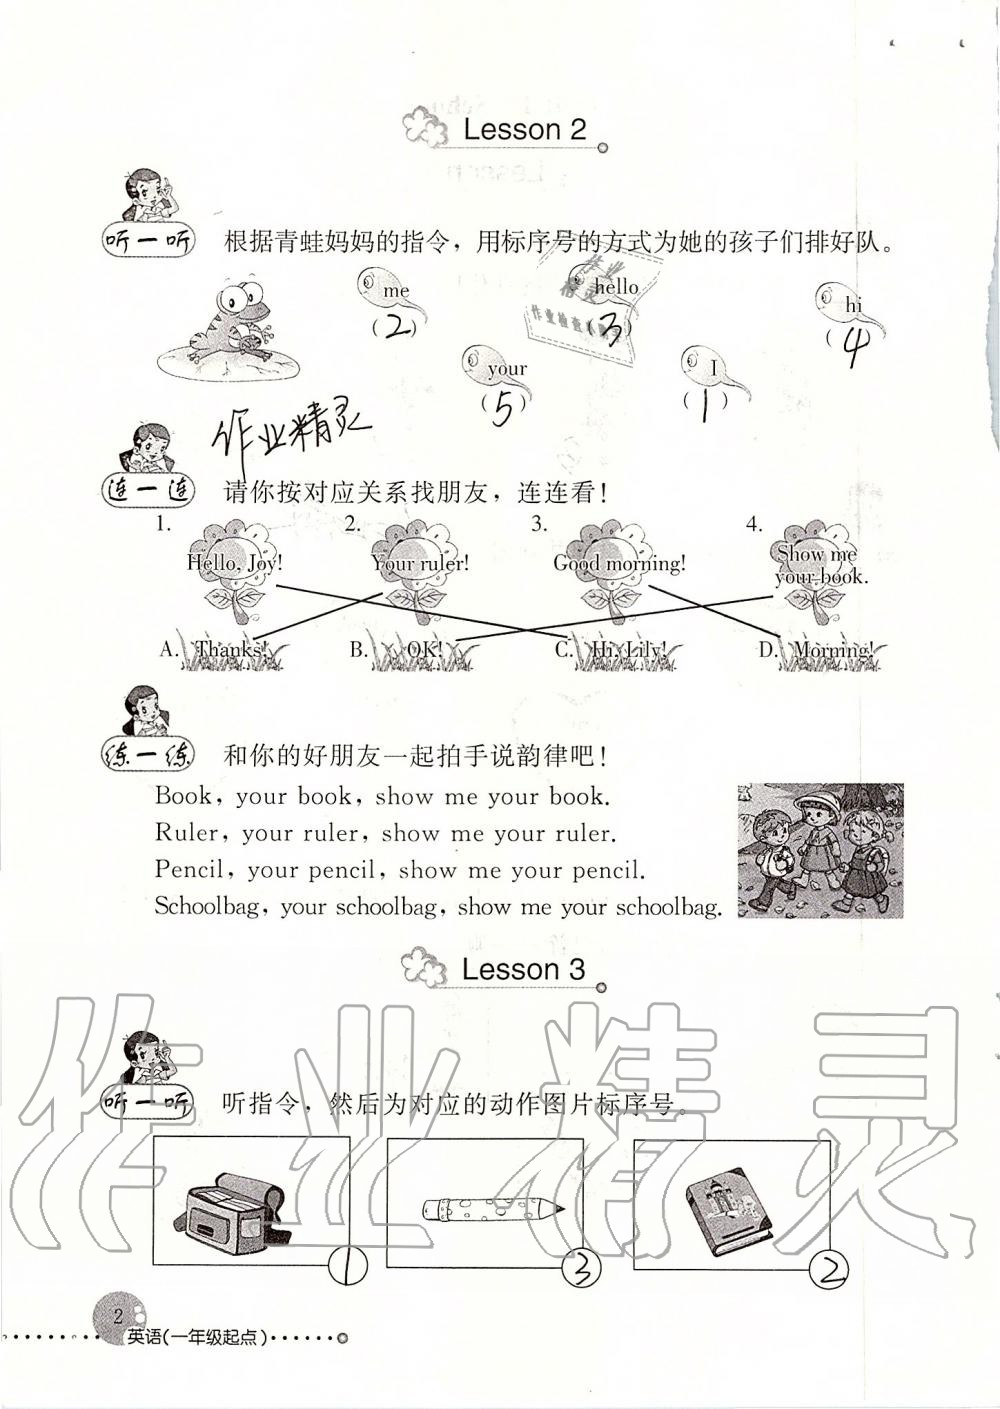 Lesson 2
听一听 根据青蛙妈妈的指令，用标序号的方式为她的孩子们排好队。
me hello hi
(2) (3) (4)
your I
(5) (1)
作业精灵
连一连 请你按对应关系找朋友，连连看！
1. 2. 3. 4.
Hello, Joy! Your ruler! Good morning! Show me your book.
A. Thanks! B. OK! C. Hi, Lily! D. Morning!
练一练 和你的好朋友一起拍手说韵律吧！
Book, your book, show me your book.
Ruler, your ruler, show me your ruler.
Pencil, your pencil, show me your pencil.
Schoolbag, your schoolbag, show me your schoolbag.
Lesson 3
作业精灵
听一听 听指令，然后为对应的动作图片标序号。
1 3 2
2
英语(一年级起点)